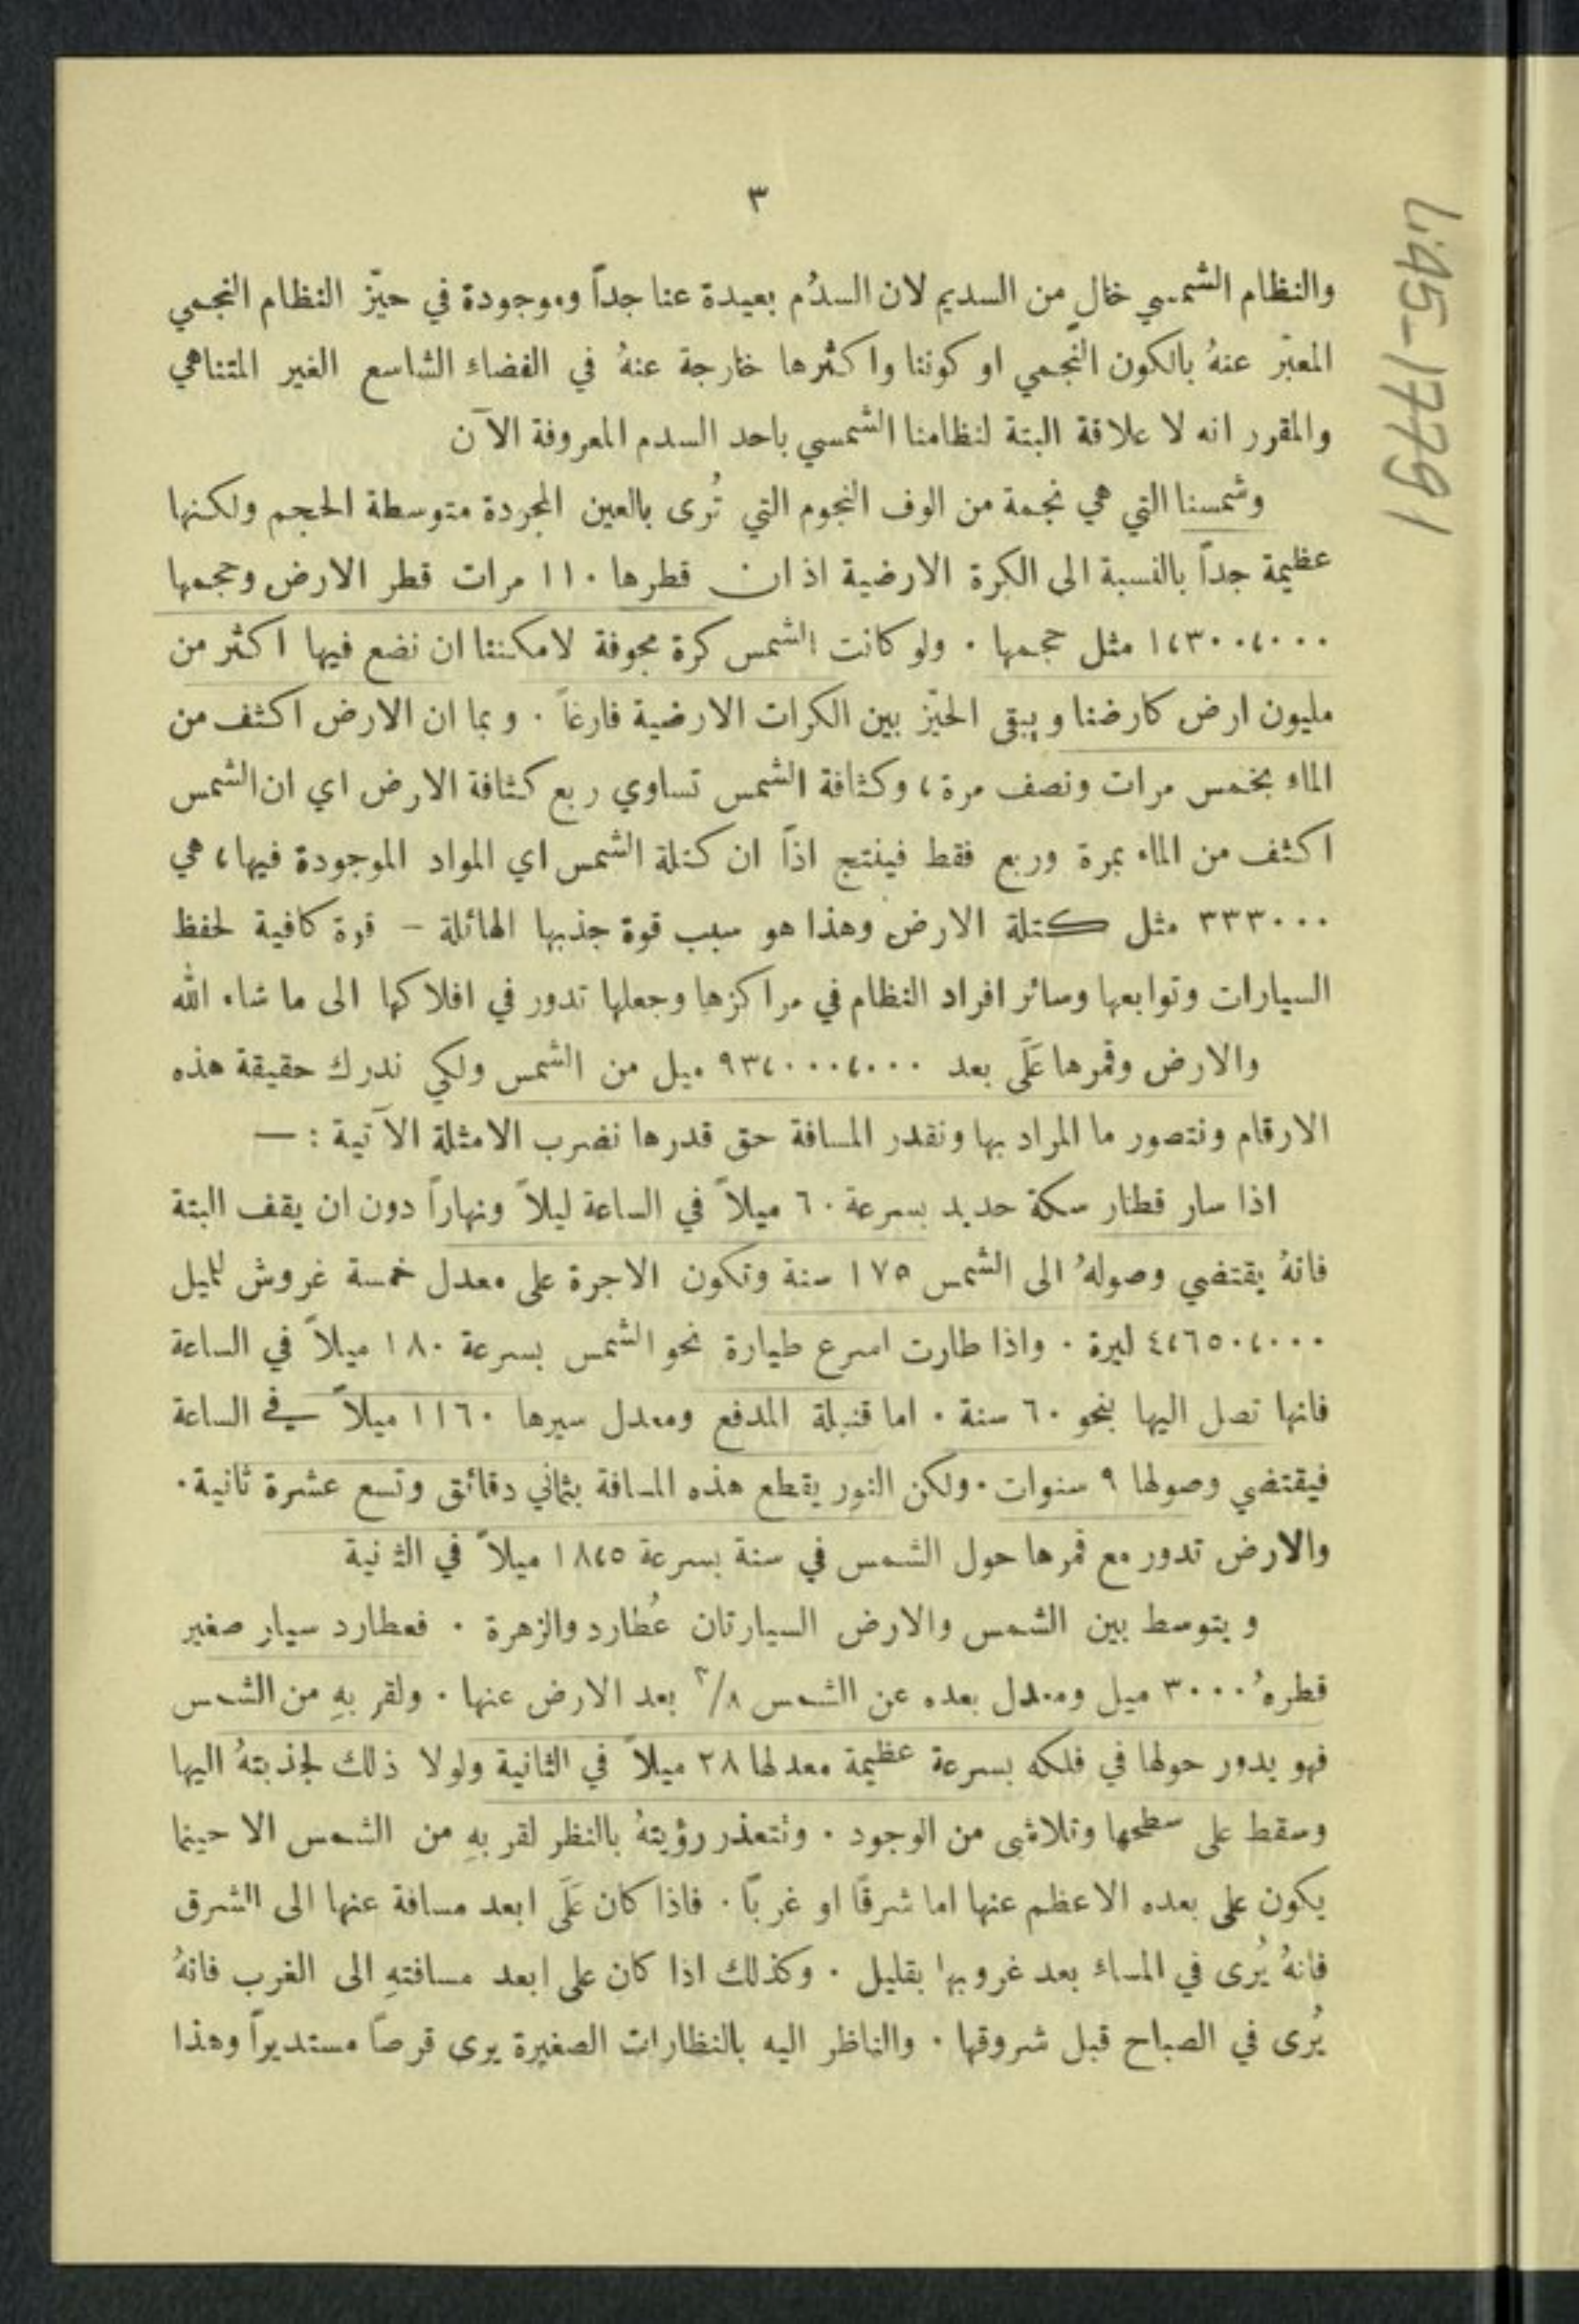 ٣
والنظام الشمسي خالٍ من السديم لان السدُم بعيدة عنا جداً وموجودة في حيّز النظام النجمي
المعبّر عنهُ بالكون النّجمي او كوننا واكثرها خارجة عنهُ في الفضاء الشاسع الغير المتناهي
والمقرر انه لا علاقة البتة لنظامنا الشمسي باحد السدم المعروفة الآن
وشمسنا التي هي نجمة من الوف النجوم التي تُرى بالعين المجردة متوسطة الحجم ولكنها
عظيمة جداً بالنسبة الى الكرة الارضية اذ ان قطرها ١١٠ مرات قطر الارض وحجمها
١٬٣٠٠٬٠٠٠ مثل حجمها . ولو كانت الشمس كرة مجوفة لامكننا ان نضع فيها اكثر من
مليون ارض كارضنا ويبقى الحيّز بين الكرات الارضية فارغاً . وبما ان الارض اكثف من
الماء بخمس مرات ونصف مرة، وكثافة الشمس تساوي ربع كثافة الارض اي ان الشمس
اكثف من الماء بمرة وربع فقط فينتج اذاً ان كتلة الشمس اي المواد الموجودة فيها، هي
٣٣٣٠٠٠ مثل كتلة الارض وهذا هو سبب قوة جذبها الهائلة – قوة كافية لحفظ
السيارات وتوابعها وسائر افراد النظام في مراكزها وجعلها تدور في افلاكها الى ما شاء الله
والارض وقمرها عَلَى بعد ٩٣٬٠٠٠٬٠٠٠ ميل من الشمس ولكي ندرك حقيقة هذه
الارقام ونتصور ما المراد بها ونقدر المسافة حق قدرها نضرب الامثلة الآتية : —
اذا سار قطار سكة حديد بسرعة ٦٠ ميلاً في الساعة ليلاً ونهاراً دون ان يقف البتة
فانهُ يقتضي وصولهُ الى الشمس ١٧٥ سنة وتكون الاجرة على معدل خمسة غروش للميل
٤٬٦٥٠٬٠٠٠ ليرة . واذا طارت اسرع طيارة نحو الشمس بسرعة ١٨٠ ميلاً في الساعة
فانها تصل اليها بنحو ٦٠ سنة . اما قنبلة المدفع ومعدل سيرها ١١٦٠ ميلاً في الساعة
فيقتضي وصولها ٩ سنوات . ولكن النور يقطع هذه المسافة بثماني دقائق وتسع عشرة ثانية .
والارض تدور مع قمرها حول الشمس في سنة بسرعة ١٨٬٥ ميلاً في الثانية
ويتوسط بين الشمس والارض السيارتان عُطارد والزهرة . فعطارد سيار صغير
قطرهُ ٣٠٠٠ ميل ومعدل بعده عن الشمس ٣/٨ بعد الارض عنها . ولقربهِ من الشمس
فهو يدور حولها في فلكه بسرعة عظيمة معدلها ٢٨ ميلاً في الثانية ولولا ذلك لجذبتهُ اليها
وسقط على سطحها وتلاشى من الوجود . وتتعذر رؤيتهُ بالنظر لقربهِ من الشمس الا حينما
يكون على بعده الاعظم عنها اما شرقًا او غربًا . فاذا كان عَلَى ابعد مسافة عنها الى الشرق
فانهُ يُرى في المساء بعد غروبها بقليل . وكذلك اذا كان على ابعد مسافتهِ الى الغرب فانهُ
يُرى في الصباح قبل شروقها . والناظر اليه بالنظارات الصغيرة يرى قرصاً مستديراً وهذا
L:45-17791